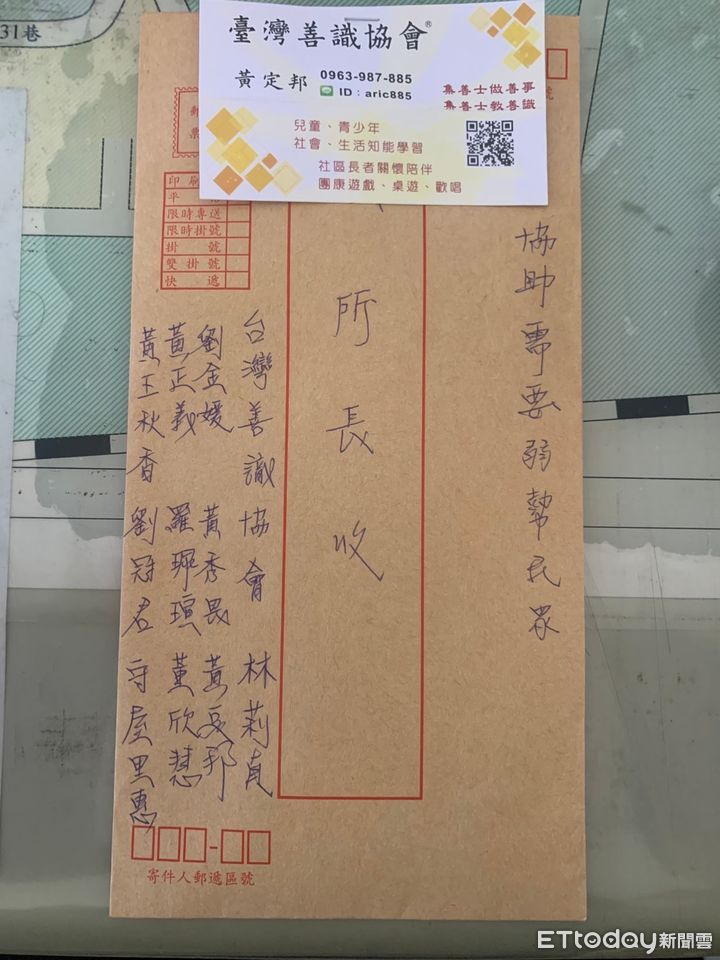 31巷
臺灣善識協會®
黃定邦 0963-987-885
ID：aric885
集善士做善事
集善士教善識
兒童、青少年
社會、生活知能學習
社區長者關懷陪伴
團康遊戲、桌遊、歡唱
郵
票
印刷
平
限時專送
限時掛號
掛號
雙掛號
快遞
協助需要弱勢民眾
所長收
台灣善識協會 林莉貞
劉金媛 黃秀
黃正義 羅琊瑄 黃欣慧
黃王秋香 劉冠君 守屋里惠
寄件人郵遞區號
ETtoday新聞雲